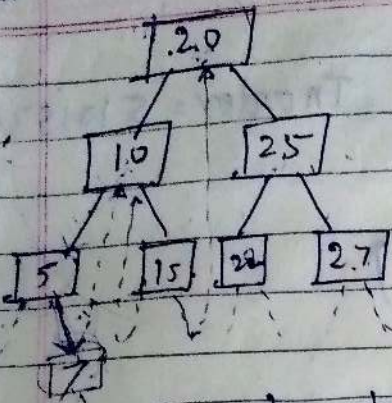 20
10 25
5 15 22 27
7